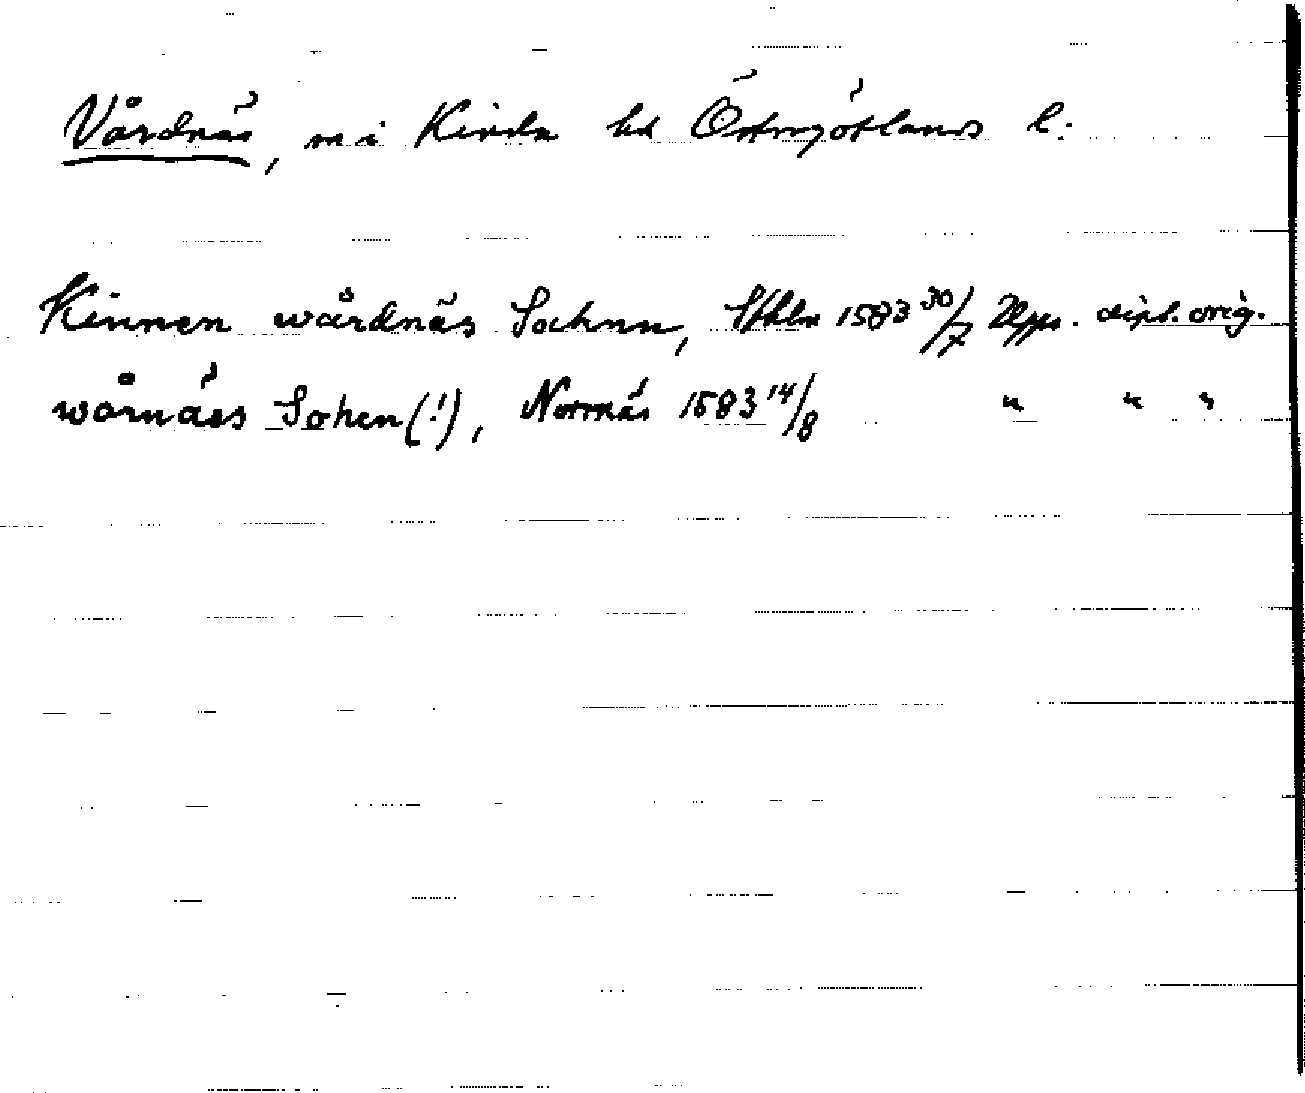 Vårdnäs, sn i Kinda hd Östergötlands l:
Kinnen wårdnäs Sochnn, Sthlm 1583 30/7 Upps. dipl. orig.
wårnäes Sohen (!), Norrnäs 1583 14/8 " " "